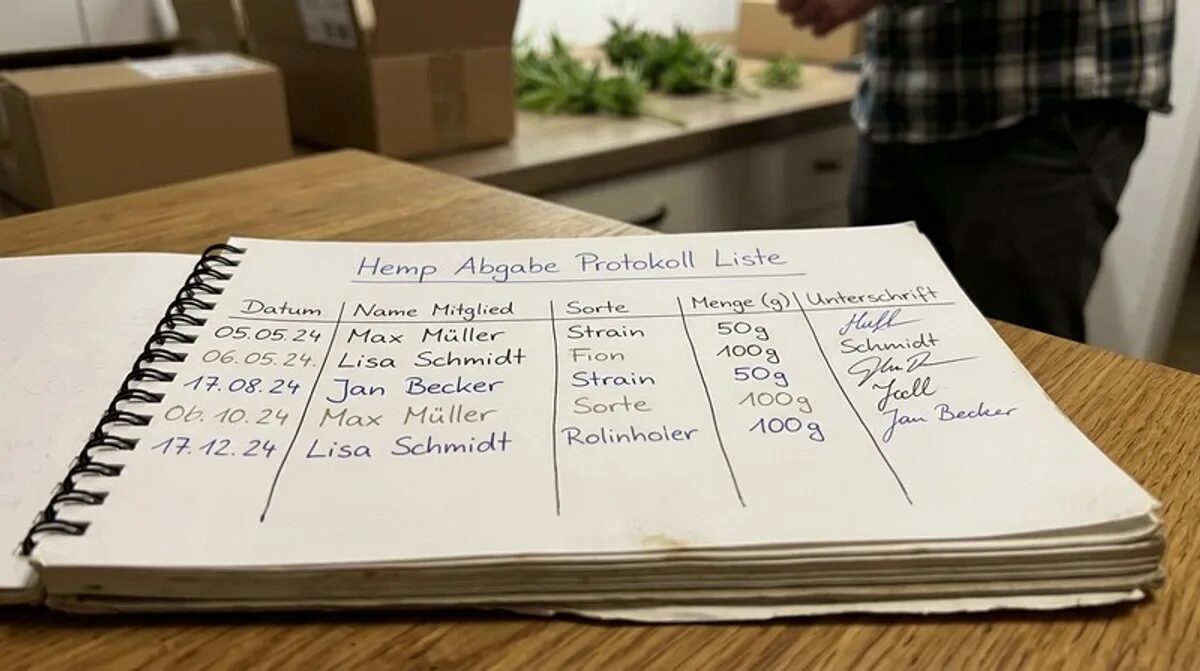 Hemp Abgabe Protokoll Liste
Datum Name Mitglied Sorte Menge (g) Unterschrift
05.05.24 Max Müller Strain 50g
06.05.24. Lisa Schmidt Fion 100g Schmidt
17.08.24 Jan Becker Strain 50g
06.10.24 Max Müller Sorte 100g
17.12.24 Lisa Schmidt Rolinhoier 100g Jan Becker